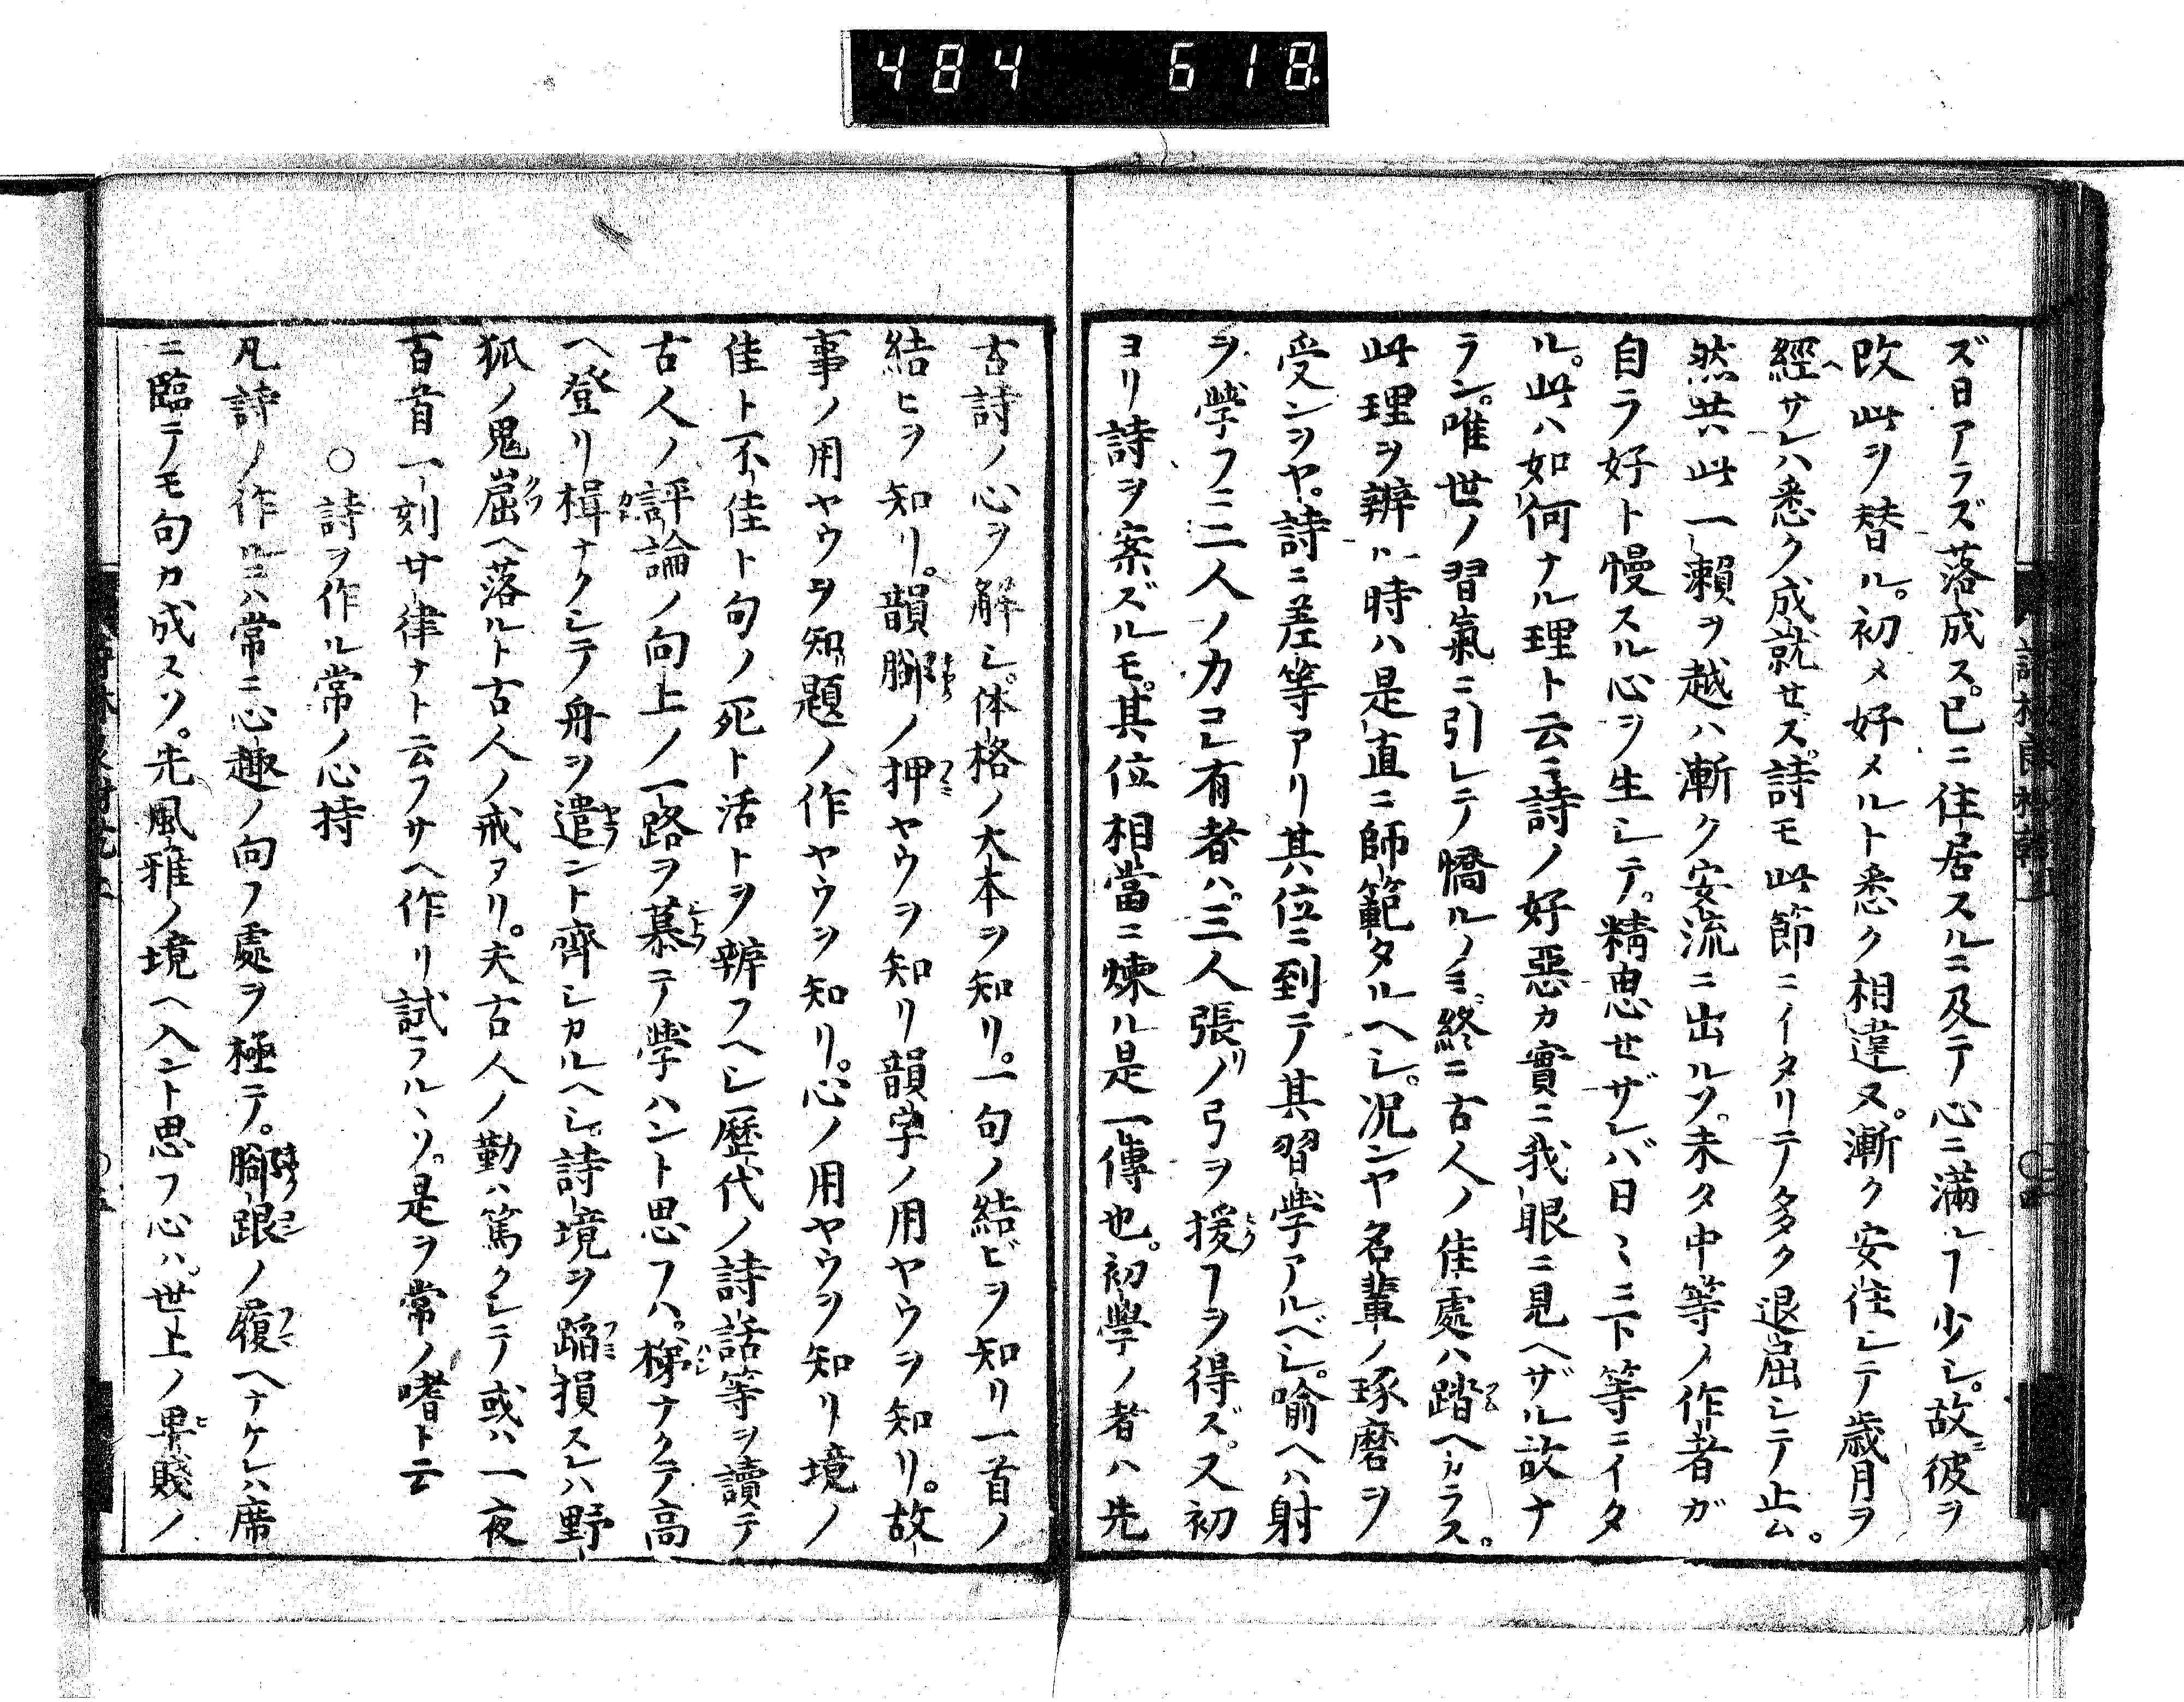 484 618
ズ日アラズ落成ス。已ニ住居スルニ及テ心ニ滿ㇾヿ少シ。故ニ彼ヲ
改此ヲ替ル。初メ好メルト悉ク相違ヌ。漸ク安住シテ歳月ヲ
經サレハ悉ク成就セズ。詩モ此節ニイタリテノ多ク退屈シテ止ム。
然共此一瀬ヲ越ハ漸ク安流ニ出ルソ。未タ中等ノ作者ガ
自ラ好ト慢スル心ヲ生シテ。精思セザレバ日〻ニ下等ニイタ
ル。此ハ如何ナル理ト云ニ詩ノ好惡カ實ニ我眼ニ見ヘザル故ナ
ラン。唯世ノ習氣ニ引レテ憍ルノミ。終ニ古人ノ佳處ハ踏ヘカラス。
此理ヲ辨ル時ハ是直ニ師範タルヘシ。况ンヤ名輩ノ琢磨ヲ
受ンヲヤ。詩ニ差等アリ其位ニ到テ其習學アルベシ。喩ヘハ射
ヲ學フニ二人ノカコレ有者ハ。三人張ノ弓ヲ援フヿヲ得ズ。又初
ヨリ詩ヲ案ズルモ。其位相當ニ煉ル是一傳也。初學ノ者ハ先
古詩ノ心ヲ解シ。体格ノ大本ヲ知リ。一句ノ結ビヲ知リ一首ノ
結ヒヲ知リ。韻脚ノ押ヤウヲ知リ韻字ノ用ヤウヲ知リ。故
事ノ用ヤウヲ知題ノ作ヤウヲ知リ。心ノ用ヤウヲ知リ境ノ
佳ト不佳ト句ノ死ト活トヲ辨フヘシ歷代ノ詩話等ヲ讀テ
古人ノ評論ノ向上ノ一路ヲ慕テ學ハント思フハ。梯ナクテ高
ヘ登リ楫ナクシテ舟ヲ遣ント齊シカルヘシ。詩境ヲ蹈損スレハ野
狐ノ鬼崫ヘ落ルト古人ノ戒アリ。夫古人ノ勤ハ篤クシテ或ハ一夜
百首一刻廿律ナト云フサヘ作リ試ラルヽソ。是ヲ常ノ嗜ト云
○詩ヲ作ル常ノ心持
凡詩ノ作ルニハ常ニ心趣ノ向フ處ヲ極テ。脚跟ノ履ヘナケレハ席
ニ臨テモ句カ成スソ。先風雅ノ境ヘ入ント思フ心ハ。世上ノ卑賤ノ